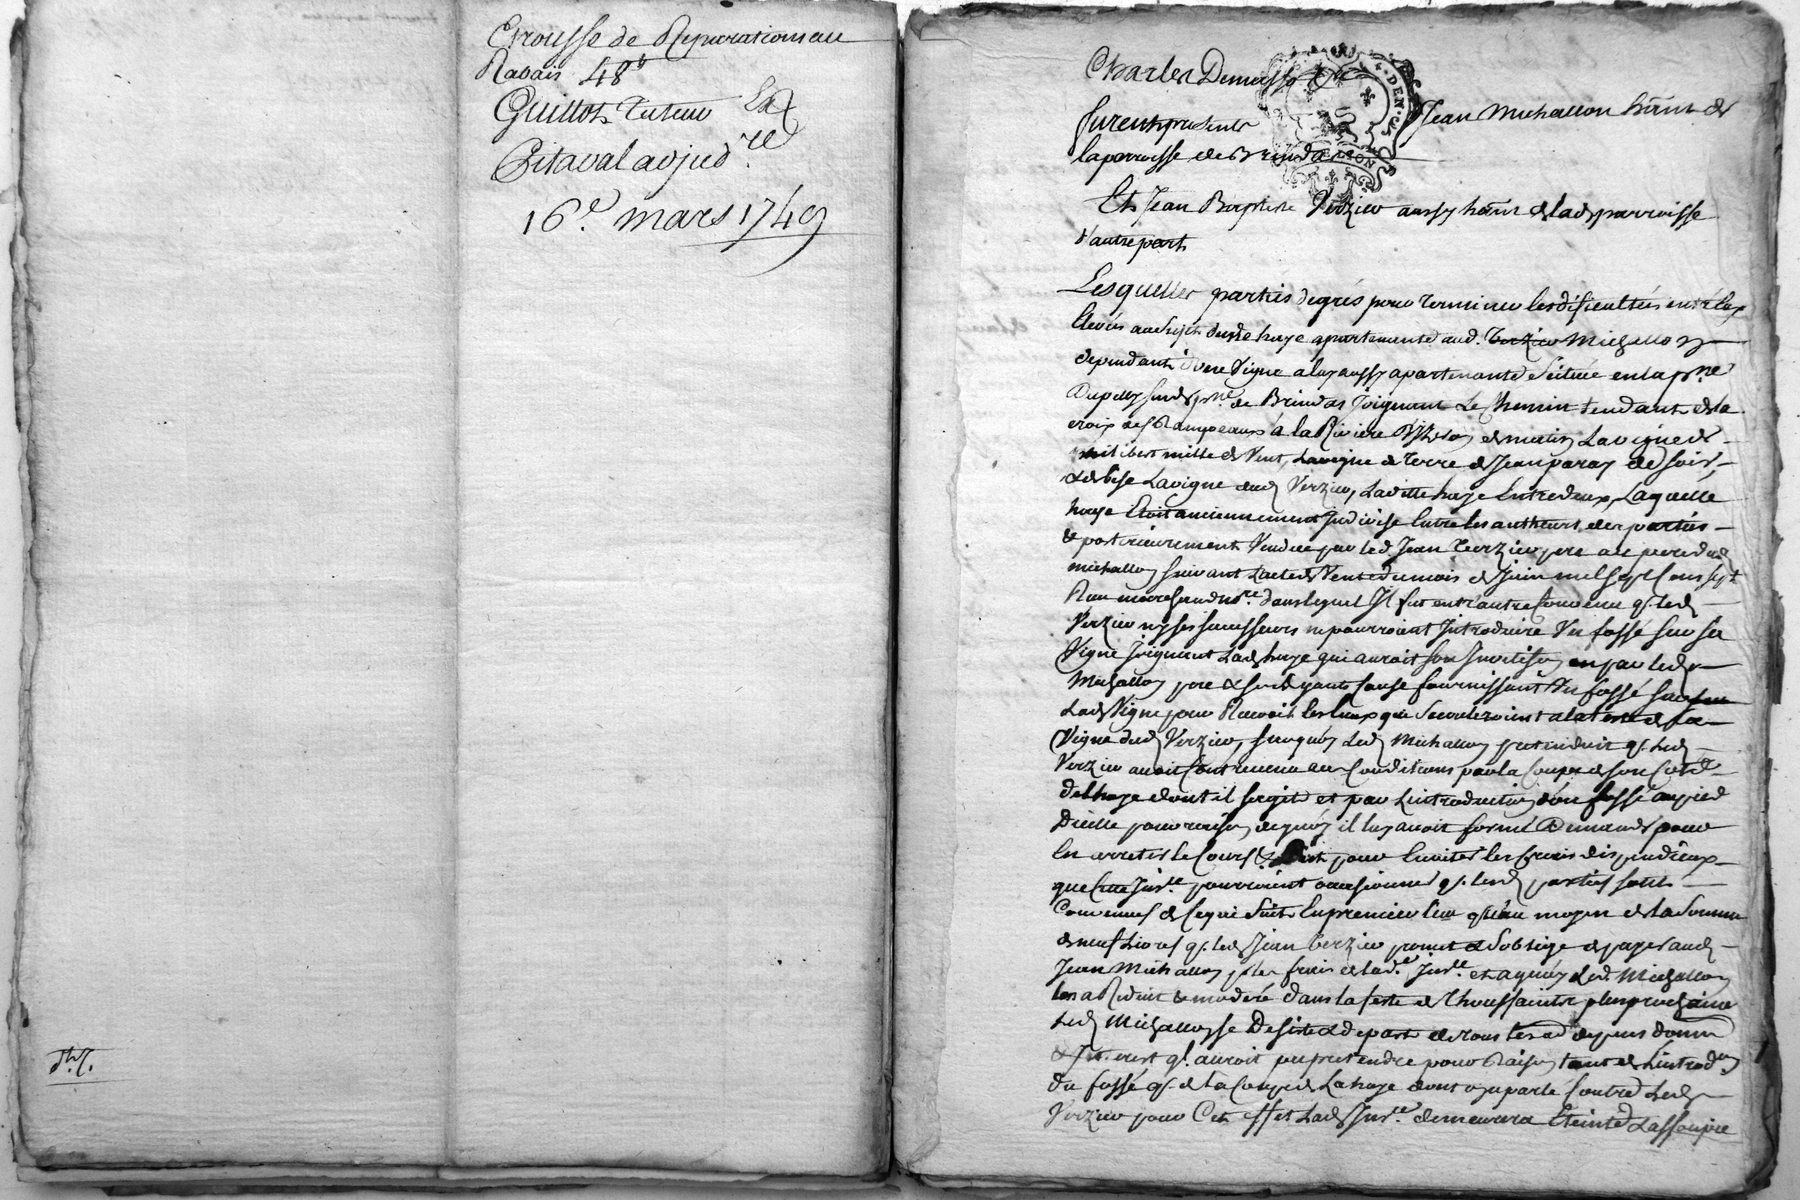 Etrousse de Reparations au
Rabais 48#
Guillot Tuteur
Pitaval adjud.re
16e. mars 1749
Charles Demasso
furent presents Jean Michallon hãnt de
la parroisse de Brindas
DE LION
4 DEN
Et Jean Baptiste Verzieu aussy hãnt de lad. parroisse
d'autre part
Lesquelles parties de grés pour terminer les difficultées entre elles
élevés au sujet de haye apartenante aud. Michallon
dependante d'une Vigne a luy aussy apartenante scituée en la
de Brindas joignant Le Chemin tendant de la
croix des Rampeaux à la Riviere de matin La vigne de
de Vent, La vigne & terre de Jean paray de soir,
& de bise La vigne dud. Verzieu, Laditte haye Entredeux, Laquelle
haye Etoit anciennement Indivise Entre les autheurs des parties
& posterieurement Vendue par led. Jean Verzieu pere au pere dud.
michallon suivant L'acte de Vente du mois de Juin mil sept cens sept
dans lequel Il fut entr'autre Convenu q. led.
Verzieu ny ses successeurs ne pourroient Introduire Un fossé sur sa
Vigne joignant Lad. haye qui auroit son par led.
Michallon pere & ayant cause fournissant Un fossé sur
Lad. Vigne pour Recevoir les Eaux que s'ecouleroient a la teste de la
Vigne dud. Verzieu, surquoy Led. Michallon pretendoit q. Led.
Verzieu avoit Contrevenu aux Conditions par la Coupe de son Coté
de haye dont il s'agit et par L'introduction d'un fossé au pied
D'icelle pour raison de quoy il luy avoit formé Demande pour
en arreter le Cours & pour Eviter les frais dispendieux
que Cette Inst.ce pourroient occasionner q. lesd. parties sont
Convenues de Ce qui suit En premier lieu qu'au moyen de la Somme
de neuf Livres q. led. Jean Verzieu promet & s'oblige de payer aud.
Jean Michallon p. les frais de lad.e Inst.ce et a quoy Led. Michallon
les a Reduit & moderé dans la feste de Thoussaints plus prochaine
Led. Michallon se Desiste & depart de tous les
q'l auroit pu pretendre pour Raison tant de L'introd.on
du fossé q. de la Coupe de La haye dont on parle Contre Led.
Verzieu pour Cet effet Lad. Inst.ce demeurera Eteinte & assoupie